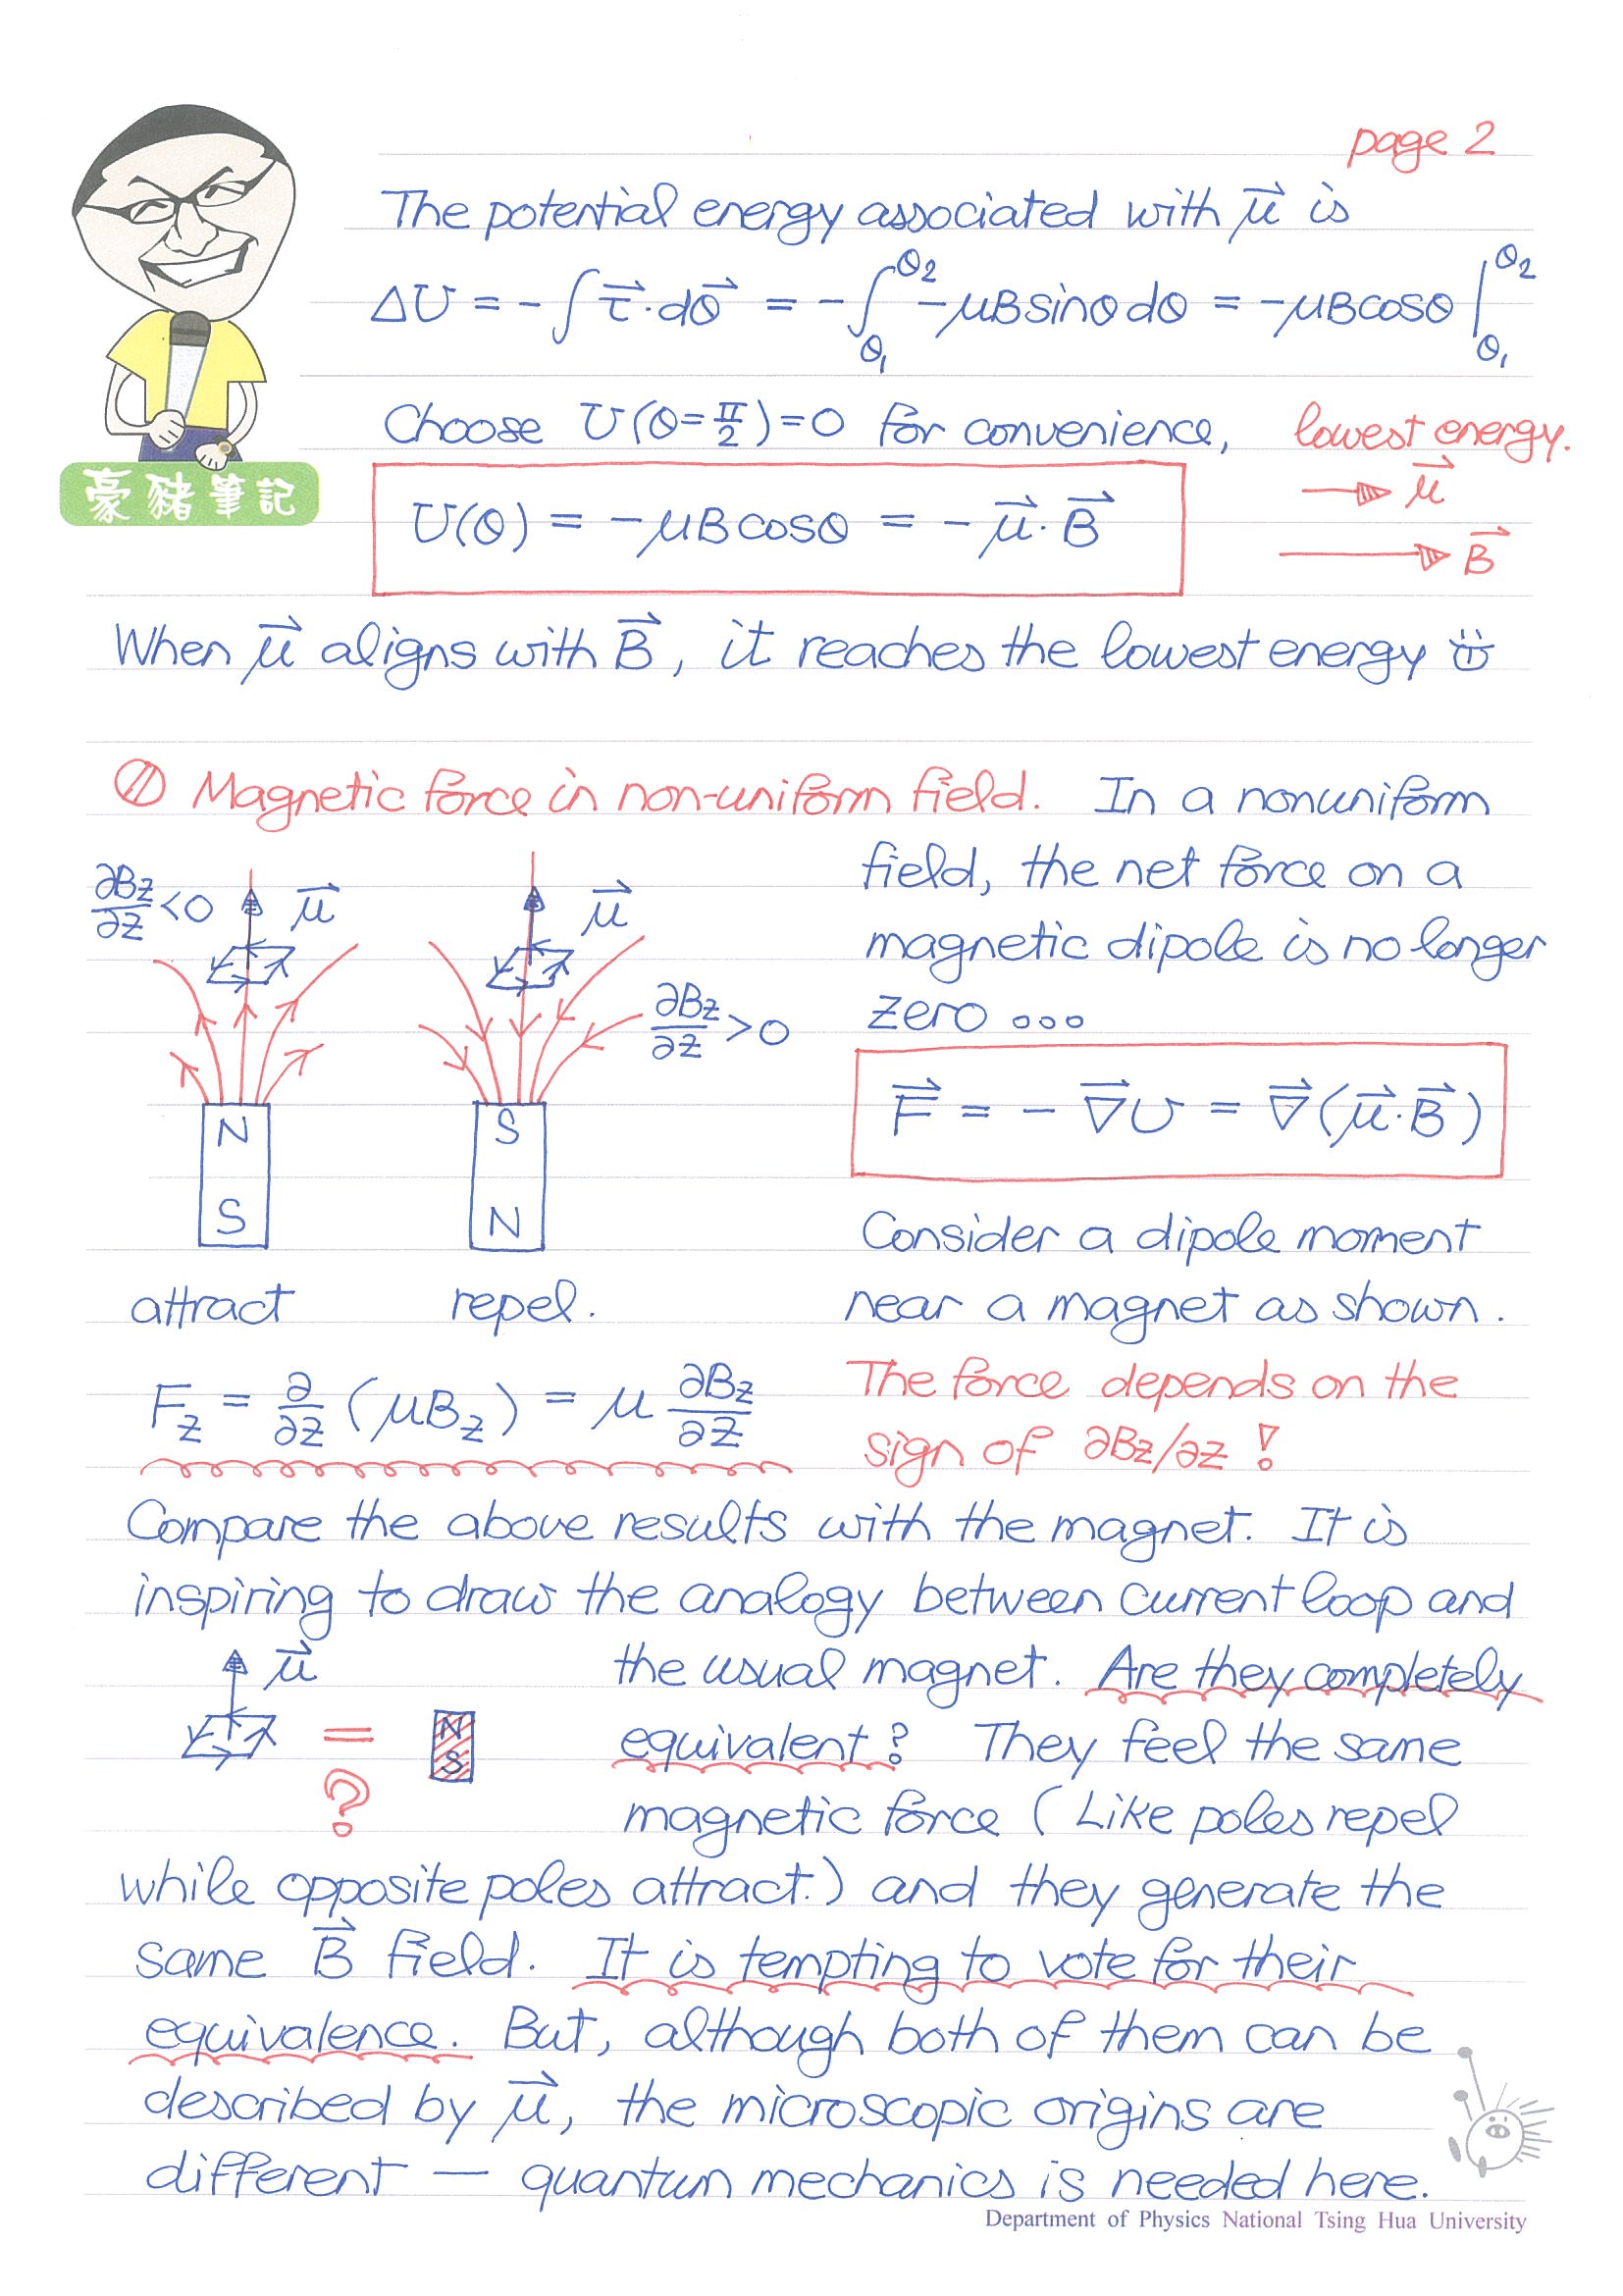 page 2
The potential energy associated with μ⃗ is
ΔU = -∫ τ⃗·dθ⃗ = -∫_θ₁^θ₂ -μB sinθ dθ = -μB cosθ |_θ₁^θ₂
Choose U(θ=π/2)=0 for convenience, lowest energy.
豪豬筆記
U(θ) = -μB cosθ = -μ⃗·B⃗
μ⃗
B⃗
When μ⃗ aligns with B⃗, it reaches the lowest energy
Magnetic force in non-uniform field. In a nonuniform
field, the net force on a
magnetic dipole is no longer
zero ...
∂Bz/∂z <0 μ⃗ μ⃗
∂Bz/∂z >0
F⃗ = -∇⃗U = ∇⃗(μ⃗·B⃗)
N S
S N
Consider a dipole moment
attract repel. near a magnet as shown.
Fz = ∂/∂z (μBz) = μ ∂Bz/∂z The force depends on the
sign of ∂Bz/∂z !
Compare the above results with the magnet. It is
inspiring to draw the analogy between current loop and
μ⃗ the usual magnet. Are they completely
= N S equivalent? They feel the same
? magnetic force (Like poles repel
while opposite poles attract.) and they generate the
same B⃗ field. It is tempting to vote for their
equivalence. But, although both of them can be
described by μ⃗, the microscopic origins are
different — quantum mechanics is needed here.
Department of Physics National Tsing Hua University